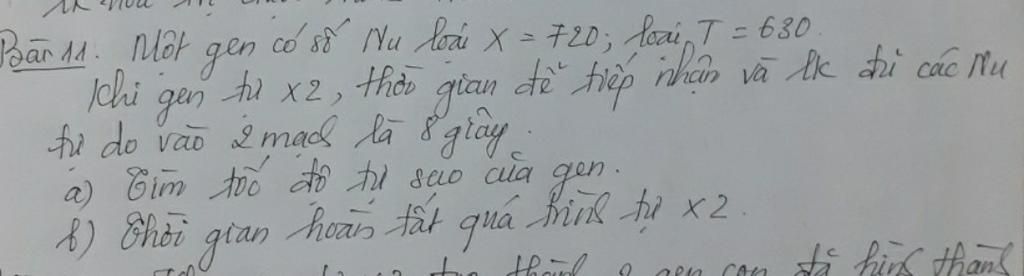 Bài 11. Một gen có số Nu loại X = 720; loại T = 630.
Khi gen tự x2, thời gian để tiếp nhận và lk đủ các Nu
tự do vào 2 mạch là 8 giây.
a) Tìm tốc độ tự sao của gen.
b) Thời gian hoàn tất quá trình tự x2.
gen con đã hình thành